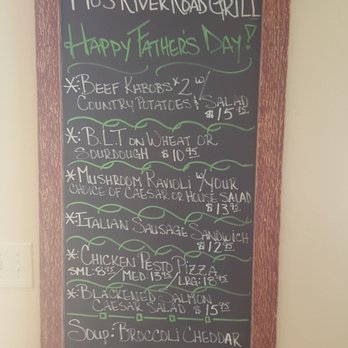 Mo's River Road Grill
Happy Father's Day!
*: Beef Kabobs x2 w/
Country Potatoes & Salad
$15.95
*: B.L.T on Wheat or
Sourdough $10.95
*: Mushroom Ravioli w/ your
choice of Caesar or House Salad
$13.95
*: Italian Sausage Sandwich
$12.95
*: Chicken Pesto Pizza
Sml: 8.95/Med: 13.95/Lrg: 18.95
*: Blackened Salmon
Caesar Salad $15.95
Soup: Broccoli Cheddar